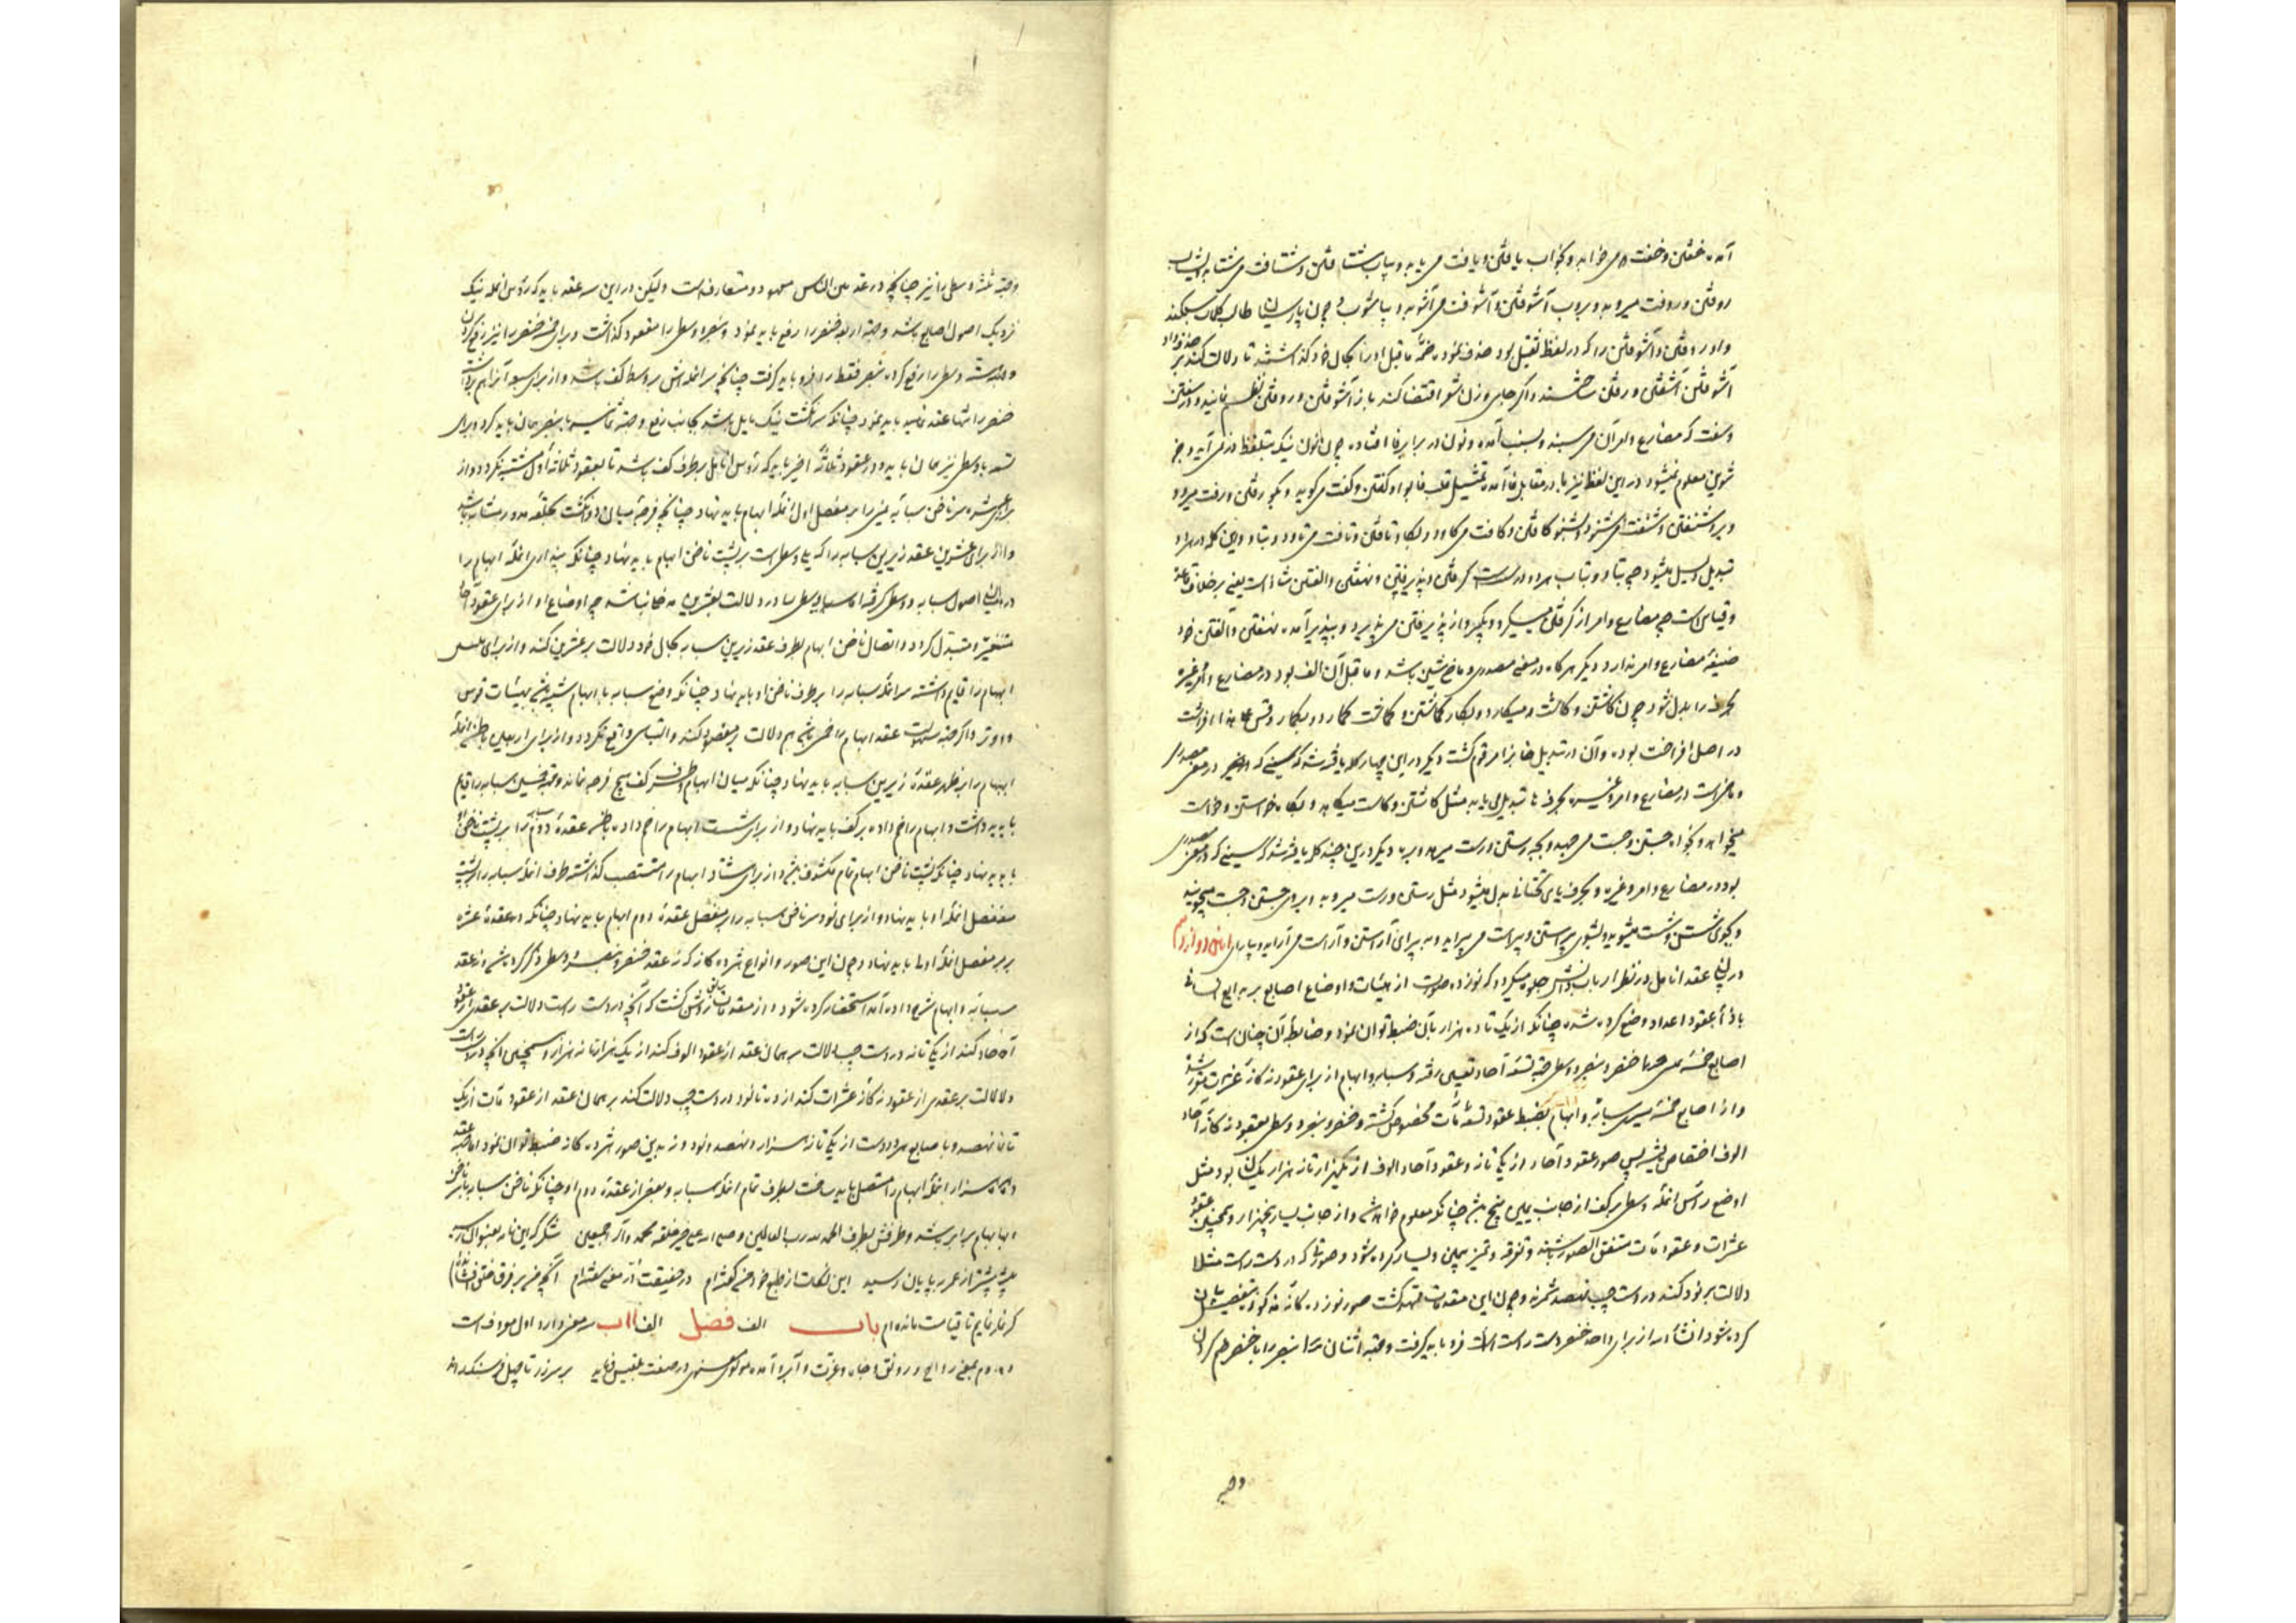 آمده خفتن و خفت می خوابد و بخواب یافتن و یافت می یابد و بیاب شتافتن و شتافت می شتابد بشتاب
روفتن و روفت میروبد و بروب آشوفتن و آشوفت می آشوبد و بیاشوب و چون پارسیان طالب کلمات سبکند
واو روفتن و آشوفتن را که در لفظ ثقیل بود حذف نموده ضمۀ ماقبل او را بحال خود گذاشتند تا دلالت کند بر حذف واو
آشوفتن آشفتن و رفتن ساختند و اگر جای وزن شعر اقتضا کند باز آشوفتن و روفتن نظم نمایند و در سفتن
و سفت که مضارع و امر آن می سنبد و بسنب آمده و نون در برابر فا افتاده چون نون نیک بتلفظ در نمی آید و جز
معلوم نمیشود در این لفظ نیز با در مقابل فا آمده تمثیل قلب فا بواو گفتن و گفت می گوید و بگو رفتن و رفت میرود
و برو شنفتن و شنفت می شنود و بشنو کافتن و کافت می کاود و بکاو تافتن و تافت می تاود و بتاو و این کلمه در هر دو
تبدیل میشود چه بتاو و بتاب هر دو درست است گرفتن و پذیرفتن و نهفتن و الفتن شاذ است یعنی بر خلاف قاعده
و قیاس است چه مضارع و امر از گرفتن میگیرد و بگیر و از پذیرفتن می پذیرد و بپذیر آمده نهفتن و الفتن خود
صیغۀ مضارع و امر ندارد دیگر هر کاه در معنی مصدری و ماضی شین باشد و ماقبل آن الف بود در مضارع و امر و غیره
بحرف را بدل شود چون کاشتن و کاشت و میکارد و بکار گماشتن و گماشت گمارد و بگمار و قس علی هذا افراشت
در اصل افراخت بوده و آن در تبدیل خا بزا مرقوم گشت دیگر در این چهار کلمه یافته شد که سینی که در معنی مصدری
و ماضی است در مضارع و امر و غیره بحرف ها تبدیل می یابد مثل کاستن و کاست میکاهد و بکاه خواستن و خواست
میخواهد و بخواه جستن و جست می جهد و بجه رستن و رست میرهد و بره دیگر درین چند کلمه یافته شد که سینی که در معنی مصدری
بود در مضارع و امر و غیره بحرف یای تحتانی بدل میشود مثل رستن و رست میروید و بروی جستن و جست میجوید
و بجوی شستن و شست میشوید و بشوی پیراستن و پیراست می پیراید و بپیرای آراستن و آراست می آراید و بیارای آیین دوازدهم
در بیان عقد انامل در نظر ارباب دانش جلوه میگیرد که نوزده صورت از هیئات و اوضاع اصابع بر بدایع انسانی
بازاء عقود اعداد وضع کرده شده چنانکه از یک تا ده هزار بآن ضبط توان نمود و ضابطۀ آن چنان است که از
اصابع خمسۀ یمنی خنصر و بنصر و وسطی جهة تسعۀ آحاد تعیین رفته و سبابه و ابهام از برای عقود نه کانۀ عشرات مقرر شد
و از اصابع خمسۀ یسری سبابه و ابهام بضبط عقود تسعۀ مآت مخصوص گشته و خنصر و بنصر و وسطی بعقود نه کانۀ آحاد
الوف اختصاص یافته پس صور عقود آحاد از یکی تا نه و عقود آحاد الوف از یکهزار تا نه هزار یکسان بود مثل
اوضع رأس انملۀ وسطی بر کف از جانب یمین پنج باشد چنانکه معلوم خواهد شد و از جانب یسار پنجهزار و همچنین عقود
عشرات و عقود مآت متفق الصور باشند و تفرقه و تمیز بیمین و یسار کرده شود و صورتی که در دست راست مثلا
دلالت بر نود کند در دست چپ نهصد شمرند و چون این مقدمات ممهد گشت صور نوزده کانۀ مذکوره بتفصیل بیان
کرده شود انشاء الله از برای واحد خنصر دست راست را فرو باید گرفت و جهة اثنان بنصر را با خنصر ضم کردن
وجه
و جهة ثلثه وسطی را نیز چنانچه در عد بین الناس معهود و متعارف است و لیکن در این سه عقد باید که رؤس انامله نیک
نزدیک اصول اصابع باشد و جهة اربعه خنصر را رفع باید نمود و بنصر و وسطی را معقود گذاشت و برای خمسه خنصر را نیز رفع کردن
و جهة سته وسطی را رفع کرده بنصر فقط را فرو باید گرفت چنانچه سر انمله اش بر وسط کف باشد و از برای سبعه آنرا هم برداشته
خنصر را تنها عقد نماید باید نمود چنانکه سر انگشت نیک مایل باشد بجانب رسغ و جهة ثمانیه با بنصر همان باید کرد و برای
تسعه با وسطی نیز همان باید و در عقود ثلاثۀ اخیر باید که رؤس انامل بر طرف کف باشد تا بعقود ثلاثۀ اول مشتبه نکردد و از
برای عشره سر ناخن سبابۀ یمنی را بر مفصل اول انملۀ ابهام باید نهاد چنانچه فرجۀ میان دو انگشت بحلقۀ مدور مشابه باشد
و از برای عشرین عقد زیرین سبابه را که یلی وسطی است بر پشت ناخن ابهام باید نهاد چنانکه پنداری انملۀ ابهام را
در میان اصول سبابه و وسطی گرفته اما وسطی را در دلالت بعشرین مدخلی نباشد چه اوضاع او از برای عقود آحاد
متغیر و متبدل کردد و اتصال ناخن ابهام بطرف عقد زیرین سبابه بحال خود دلالت بر عشرین کند و از برای ثلثین
ابهام را قایم داشته سر انملۀ سبابه را بر طرف ناخن او باید نهاد چنانکه وضع سبابه با ابهام شبیه باشد بهیئات قوس
و وتر و اگر جهة سهولت عقد ابهام را خمی باشد هم دلالت بر مقصود کند و التباسی واقع نکردد و از برای اربعین باطن انملۀ
ابهام را بر ظهر عقدۀ زیرین سبابه باید نهاد چنانکه میان ابهام و طرف کف هیچ فرجه نماند و جهة خمسین سبابه را قایم
باید داشت و ابهام را خم داده بر کف باید نهاد و از برای شصت ابهام را خم داده باطن عقدۀ دوم سبابه را بر پشت ناخن او
باید نهاد چنانکه پشت ناخن ابهام تمام مکشوف باشد و از برای هشتاد ابهام را منتصب گذاشته طرف انملۀ سبابه را بر پشت
مفصل انملۀ او باید نهاد و از برای نود سر ناخن سبابه را بر مفصل عقدۀ دوم ابهام باید نهاد چنانکه در عقدۀ عشره
بر مفصل انملۀ اولی باید نهاد و چون این صور و انواع هژده کانه که نه عقد خنصر و بنصر و وسطی ذکر کرده شد و نه عقد
سبابه و ابهام شرح داده آمد استحضار کرده شود و از مقدمات سابق روشن گشت که آنچه در دست راست دلالت بر عقدی از عقود
آحاد کند از یکی تا نه در دست چپ دلالت بر همان عقد از عقود الوف کند از یک هزار تا نه هزار و همچنین آنچه در دست راست
دلالت بر عقدی از عقود نه کانۀ عشرات کند از ده تا نود در دست چپ دلالت کند بر همان عقد از عقود مآت از یک
تا نهصد و با اصابع هر دو دست از یکی تا نه هزار و نهصد و نود و نه بدین صور هژده کانه ضبط توان نمود اما جهة عقد
ده هزار انملۀ ابهام را متصل باید ساخت بطرف تمام انملۀ سبابه و بعض از عقدۀ دوم او چنانکه ناخن سبابه با ناخن
ابهام برابر باشد و طرفش بطرف الحمد لله رب العالمین و صلی الله علی خیر خلقه محمد و آله اجمعین شکر که این نامه بعنوان رسید
پیشتر از عمر بپایان رسید این نکات از طبع خود گفته ام در حقیقت در معنی سفته ام آنچه من بر فرق خلق افشانده ام
گر نمایم تا قیامت مانده ام باب الف فصل الف اب سه معنی دارد اول معروفست
دوم بمعنی رواج و رونق و جاه و عزت و آبرو آمده مولوی معنوی در صفت بلقیس فرماید